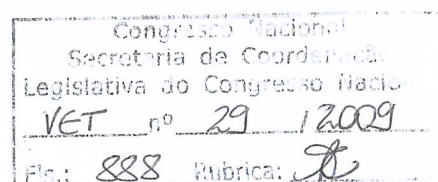 Congresso Nacional
Secretaria de Coordenação
Legislativa do Congresso Nacio
VET nº 29 / 2009
Fls.: 888 Rubrica: